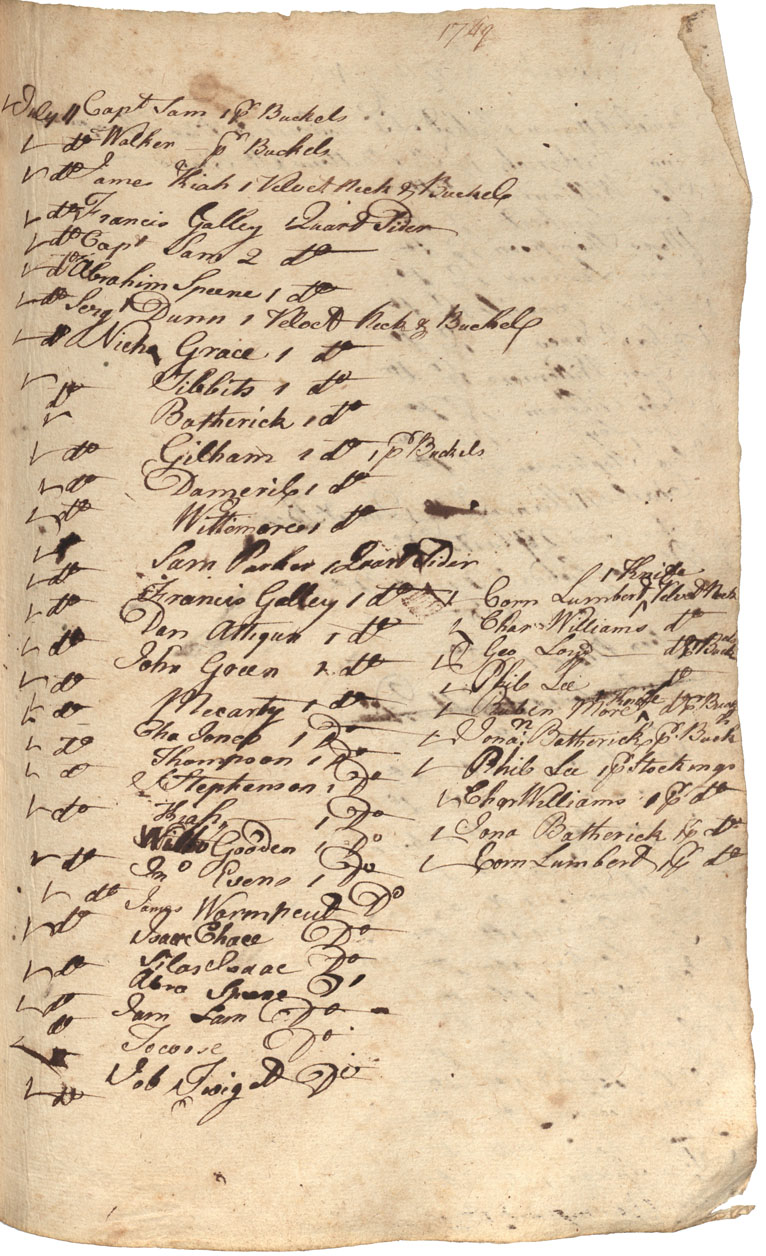 1749
July 11 Capt Sam 1 pr Buckels
do Walker pr Buckels
do James Kiah 1 Velvet Neck & Buckels
do Francis Galley 1 Quart Sider
do Capt Sam 2 do
do Abrahim Speene 1 do
do Sergt Dunn 1 Velvet Neck & Buckels
do Nichs Grace 1 do
do Tibbits 1 do
Batherick 1 do
do Gilham 1 do 1 pr Buckels
do Damerils 1 do
do Wittemore 1 do
Sam Parker 1 Quart Sider
do Francis Galley 1 do
do Dan Attiqun 1 do
do John Green 2 do
do Mecarty 1 do
do Cha Jones 1 Do
do Thompson 1 Do
do Stephenson 1 Do
do Kiah 1 Do
Willo Gooden 1 Do
do Jno Esens 1 Do
do James Wormpeut Do
do Isaac Chace Do
Silas Isaac Do
do Abra Speene
do Sam Sam Do
do Tocoose Do
do Job Twiget Do
1 Knife
1 Corn Lumbert, Velvet Neck
1 Char Williams do
Geo Lord do Buck
1 Phil Lee do
1 Robin More Knife do pr Buc
1 Jonan Batherick pr Buck
1 Phil Lee 1 pr Stockings
1 Char Williams 1 pr do
1 Jona Batherick 1 pr do
1 Corn Lumbert 1 pr do